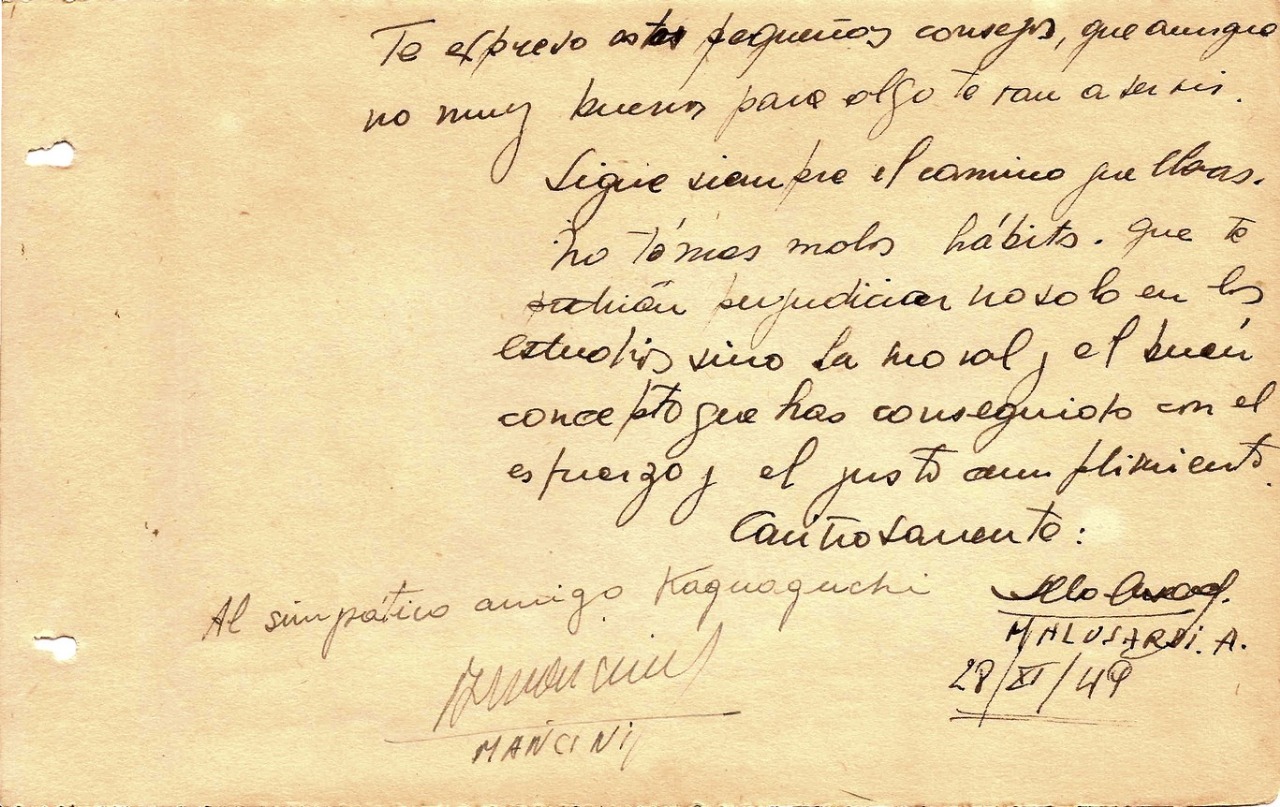 Te expreso estos pequeños consejos, que aunque
no muy buenos para algo te van a servir.
Sigue siempre el camino que llevas.
No tómes malos hábitos. que te
podrián perjudicar no solo en los
estudios sino la moral y el buén
concepto que has conseguido con el
esfuerzo y el justo cumplimiento.
Cariñosamente:
Al simpático amigo Kaguaguchi
MALUSARDI. A.
28/XI/49
Mancini
MANCINI